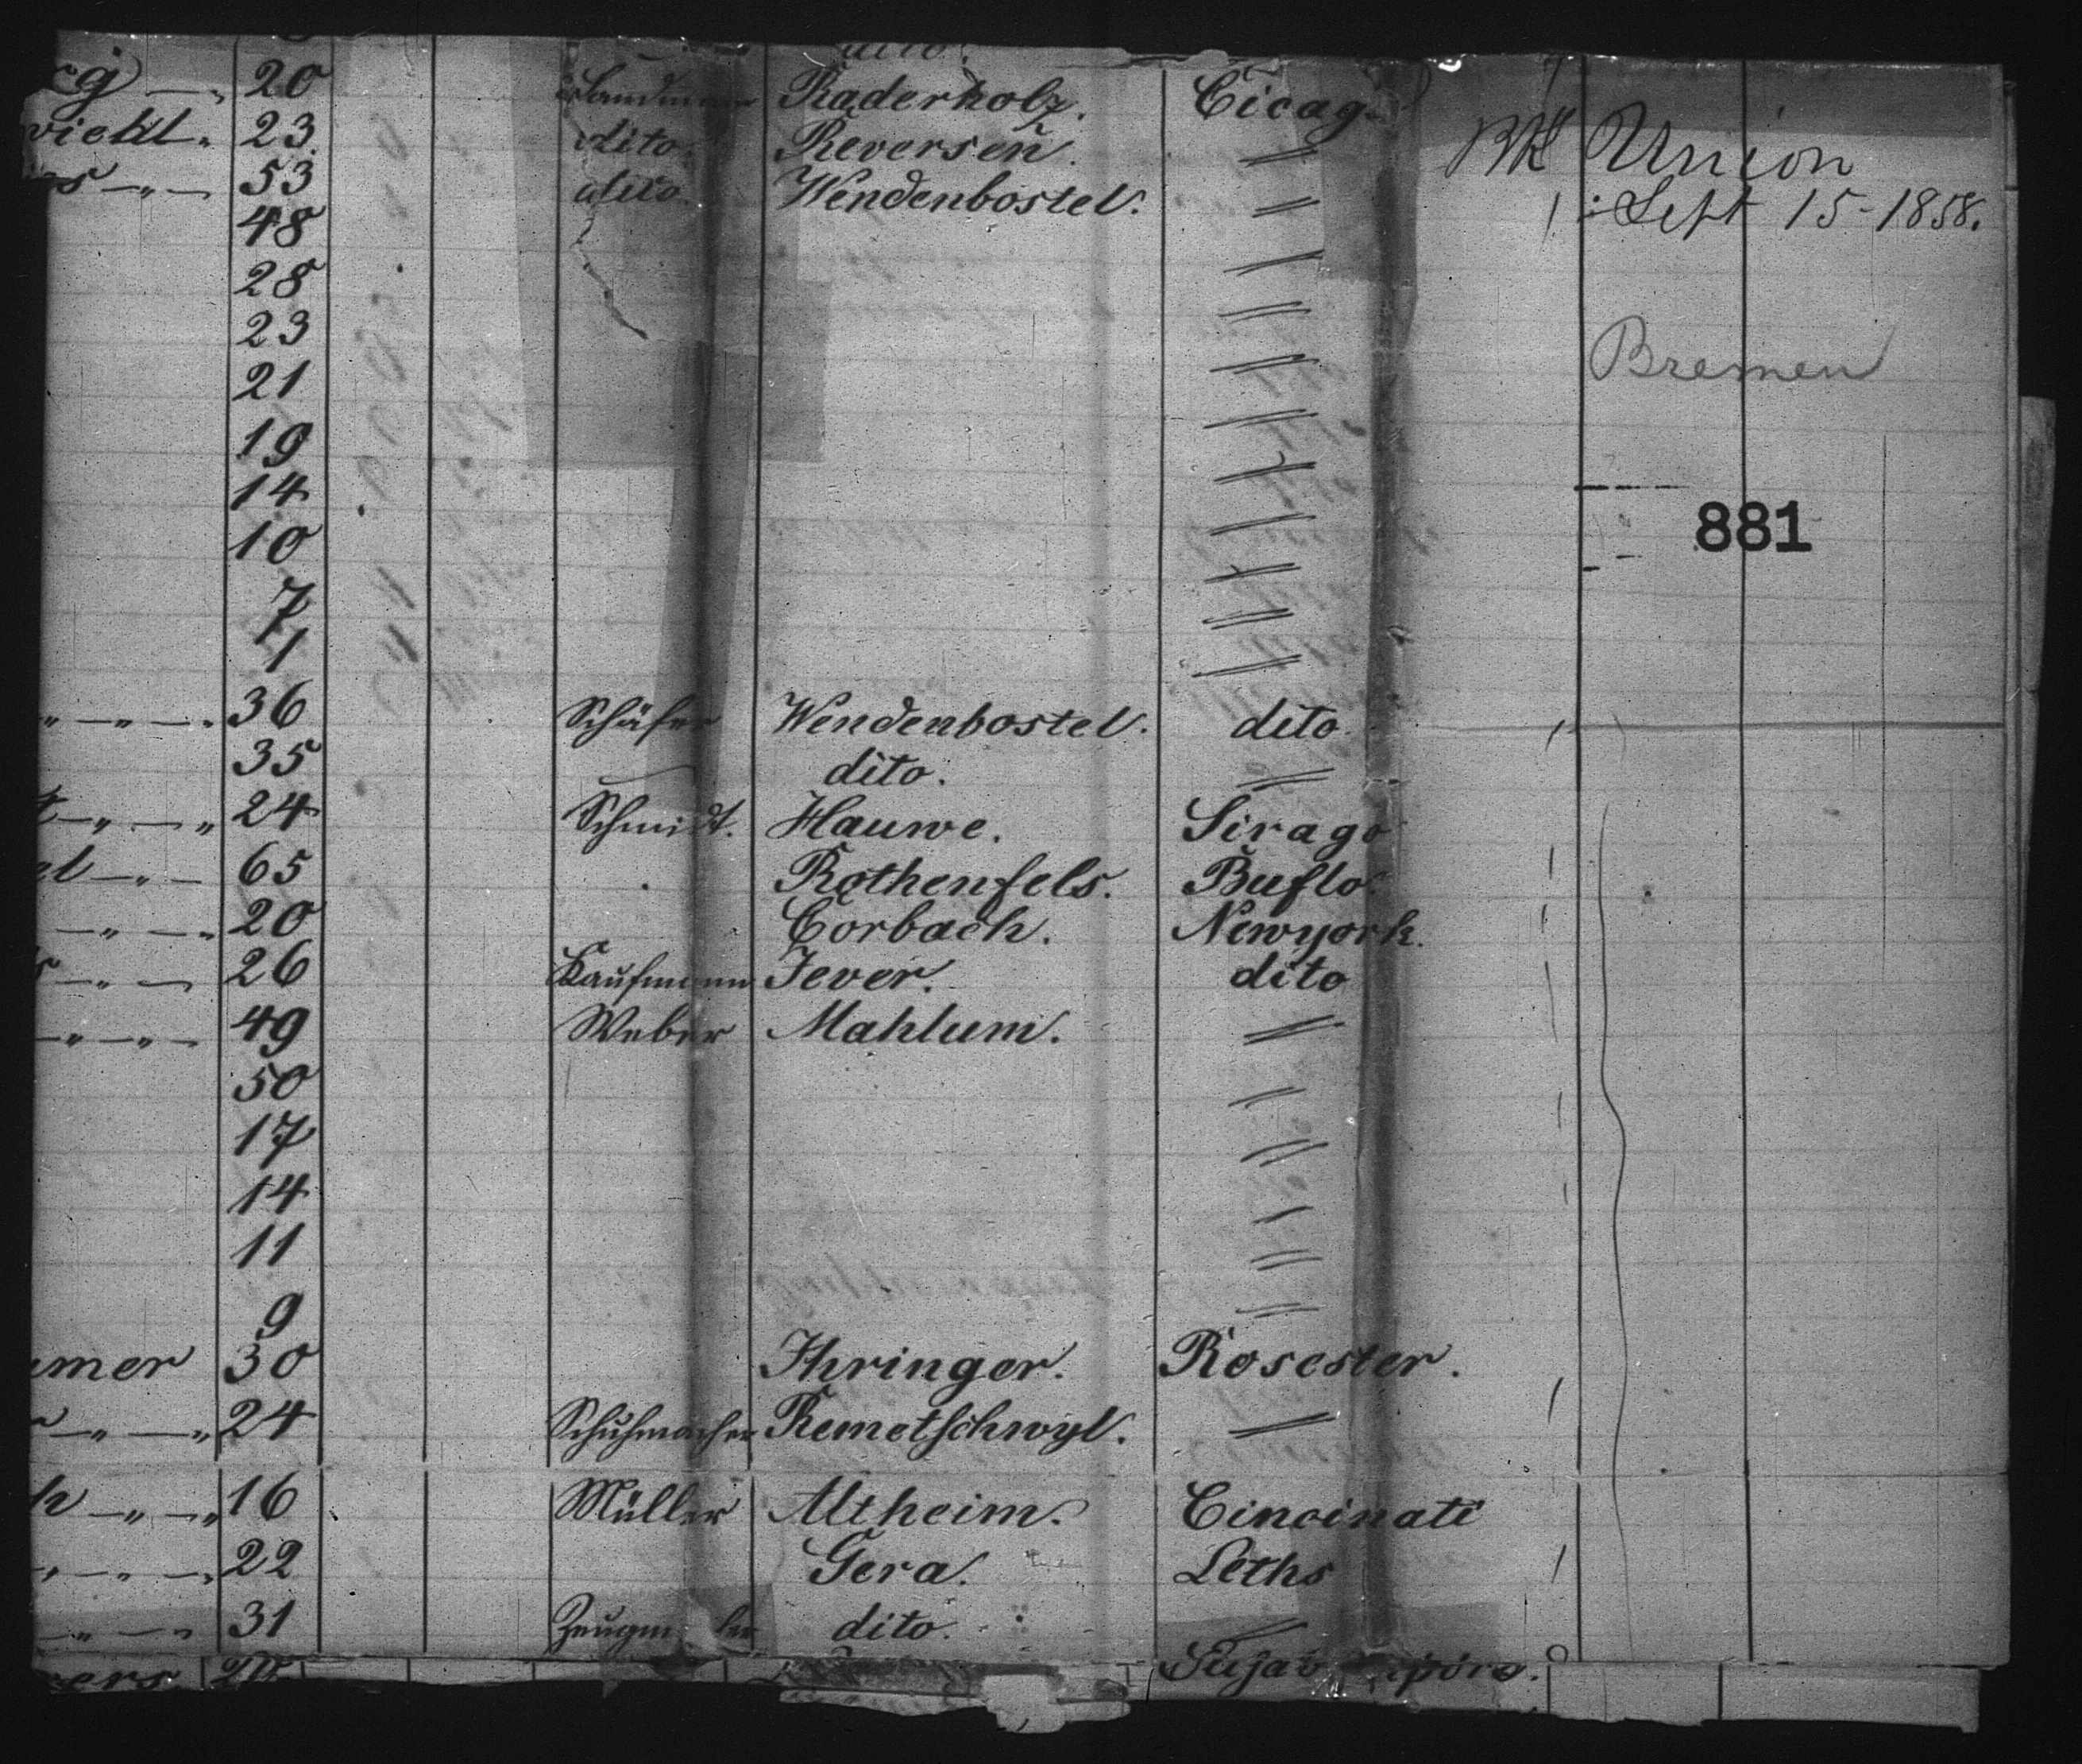 dito.
20 Landmann Raderholz. Cicago
23. dito. Reversen. "
53 dito. Wendenbostel. "
48 "
28 "
23 "
21 "
19 "
14 "
10 "
7 "
1 "
36 Schäfer Wendenbostel. dito
35 dito. "
24 Schmidt. Hauwe. Sirago
65 Rothenfels. Buflo.
20 Corbach. Newyork.
26 Kaufmann Jever. dito
49 Weber Mahlum. "
50 "
17 "
14 "
11 "
9 "
mer 30 Ihringer. Rosester.
24 Schuhmacher Remetschwyl. "
16 Müller Altheim. Cincinati
22 Gera. Leths
31 dito. "
ers
BK Union
Sept 15-1858.
Bremen
881